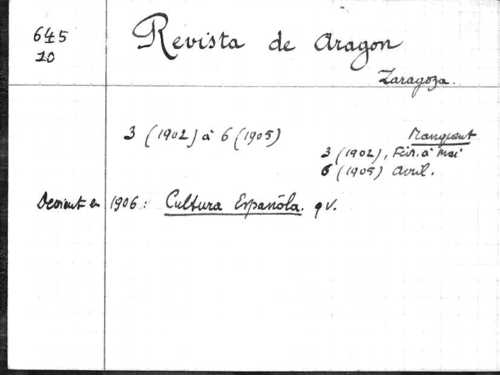 645
20
Revista de Aragon
Zaragoza.
3 (1902) à 6 (1905)
Manquent
3 (1902), Fév. à mai
6 (1905) Avril.
Devient en 1906 : Cultura Española. qv.